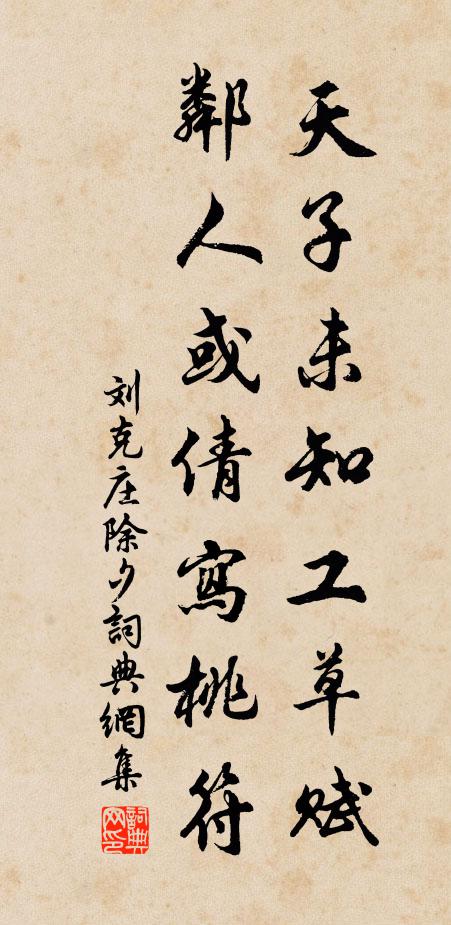 天子未知工草赋
鄰人或倩寫桃符
刘克庄除夕詞典網集
詞典网印